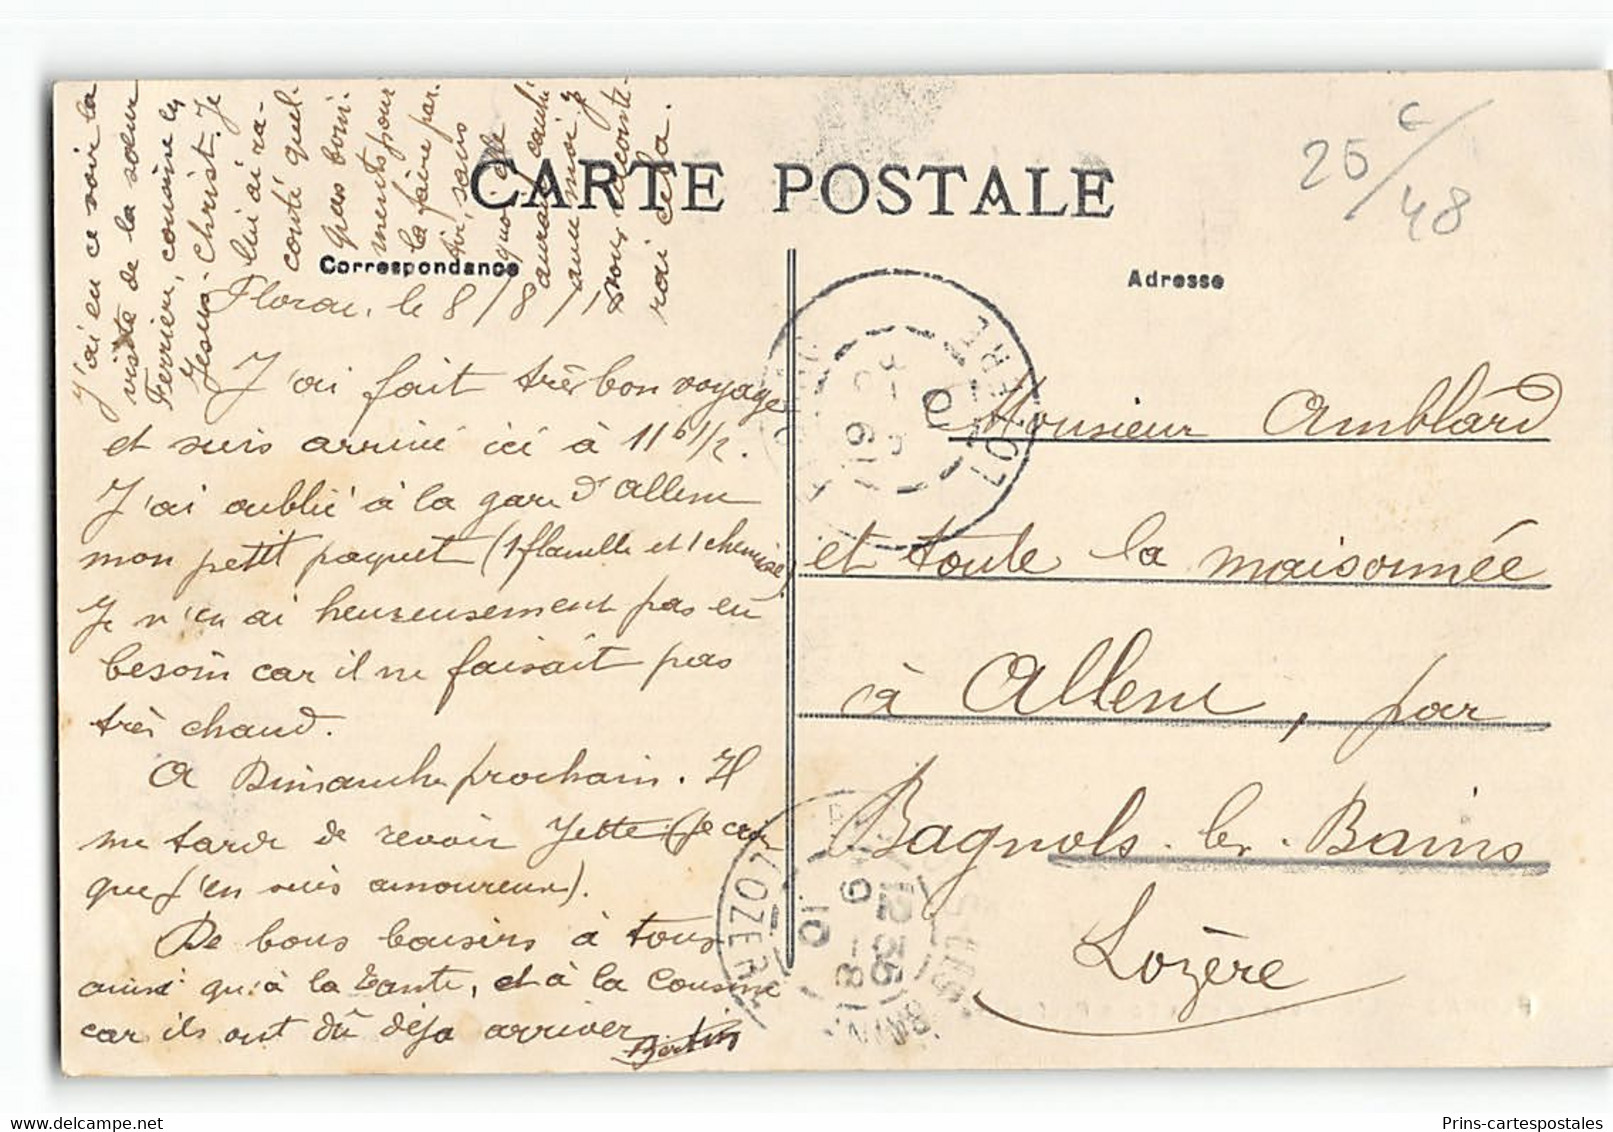 J'ai eu ce soir la
visite de la sœur
Ferrier, cousine en
Jésus-Christ. Je
lui ai ra-
conté quel-
ques boni-
ments pour
la faire par-
tir, sans
quoi elle
aurait couché
avec moi. Je
vous raconte-
rai cela.
CARTE POSTALE
25 €/48
Correspondance
Adresse
Florac, le 8/8/1
J'ai fait très bon voyage
et suis arrivé ici à 11 h 1/2.
J'ai oublié à la gare d'Allenc
mon petit paquet (1 flanelle et 1 chemise)
Je n'en ai heureusement pas eu
besoin car il ne faisait pas
très chaud.
A Dimanche prochain. Il
me tarde de revoir Yette (je crois
que j'en suis amoureux).
De bons baisers à tous
ainsi qu'à la tante, et à la cousine
car ils ont dû déjà arriver
Bertin
Monsieur Amblard
et toute la maisonnée
à Allenc, par
Bagnols-les-Bains
Lozère
LOZERE
LOZERE
12 35
9 -8
10
Prins-cartespostales